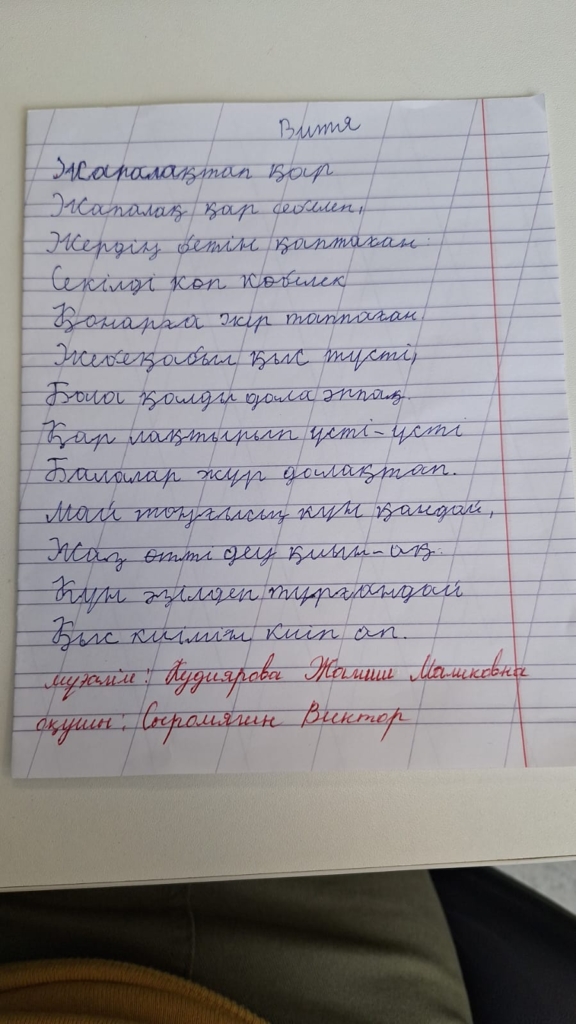 Витя
Жапалақтап қар
Жапалақ қар себелеп,
Жердің бетін қаптаған
Секілді көп көбелек
Қонарға жер таппаған
Жебеқабыл қыс түсті,
Бола қалды дала аппақ.
Қар лақтырып үсті-үсті
Балалар жүр далақтап.
Май тоңғысыз күн қандай,
Жаз өтті деу қиын-ақ.
Күн әзілдеп тұрғандай
Қыс киімін киіп ап.
мұғалім: Кудиярова Жамиш Машковна
оқушы: Сыромягин Виктор